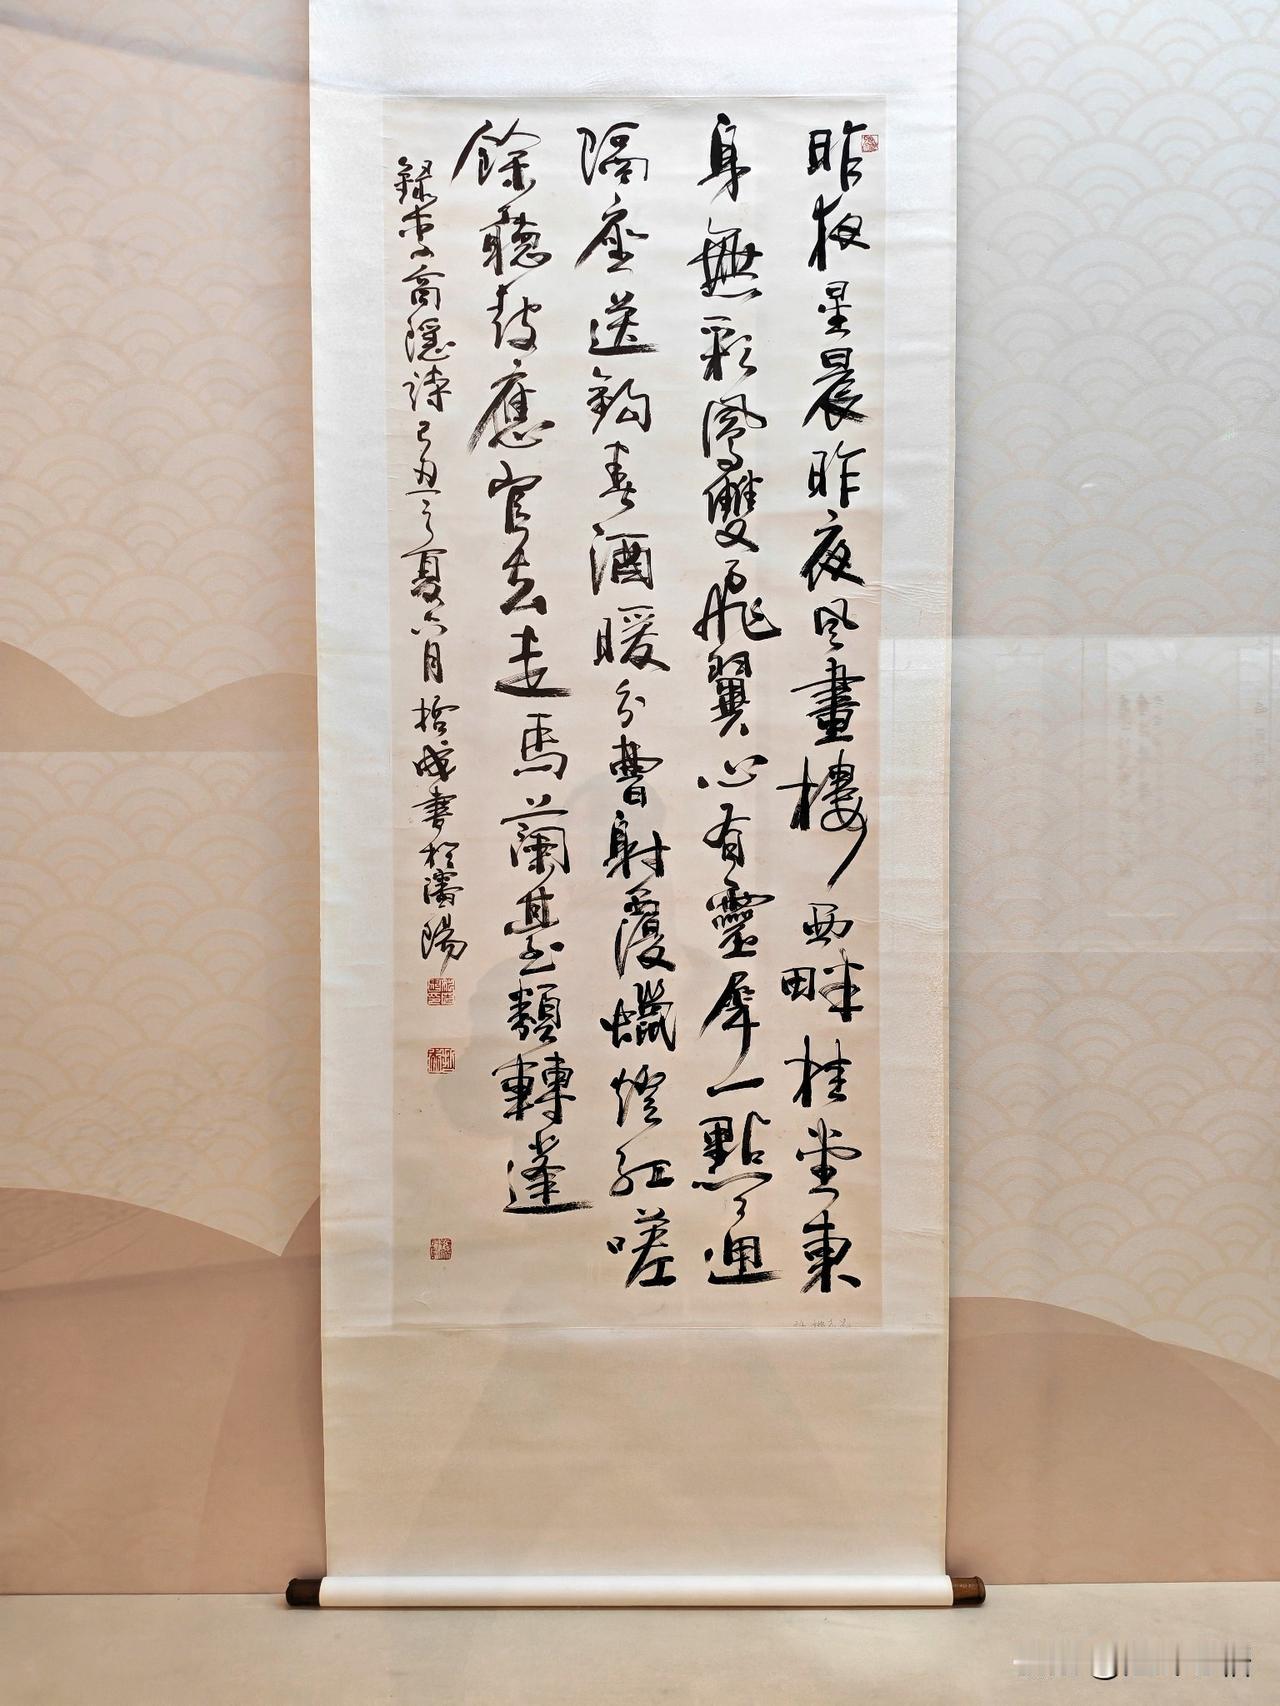 昨夜星晨昨夜风畫樓西畔桂堂東
身無彩鳳雙飛翼心有靈犀一點通
隔座送鈎春酒暖分曹射覆蠟燈紅嗟
餘聽鼓應官去走馬蘭臺類轉蓬
錄李商隱詩己丑之夏六月哲成書於瀋陽